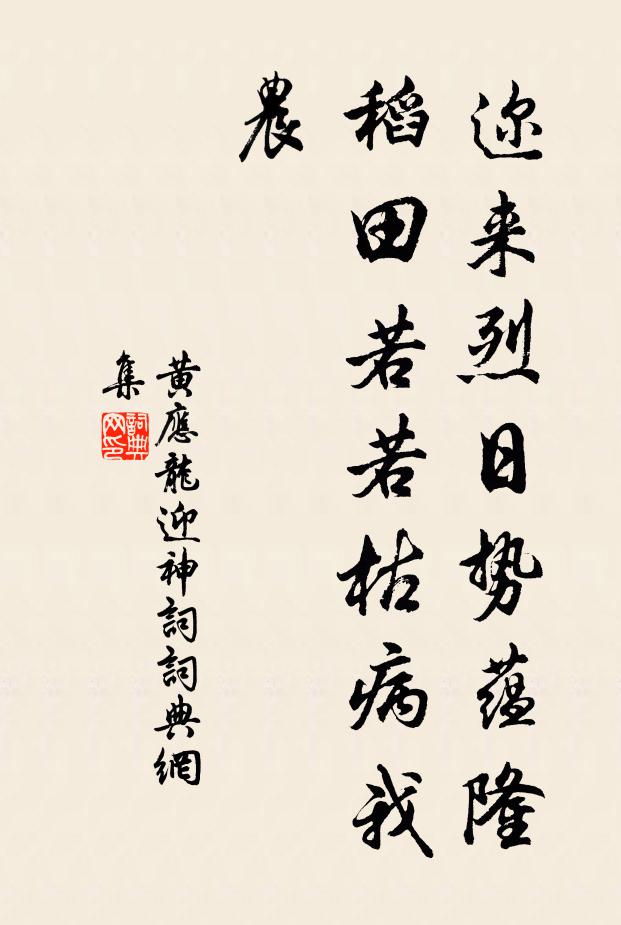 迩来烈日势蕴隆
稻田若若枯病我
農
黄應龍迎神詞詞典網
集
詞典
网印